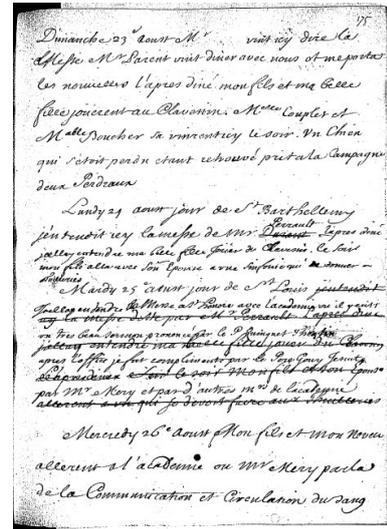 75
Dimanche 23e aoust Mr vint icy dire la
Messe Mr Parent vint diner avec nous et me porta
les nouvelles l'apres diné mon fils et ma belle
fille jouerent au Clavessin. Melle Couplet et
Mable Boucher sa vinrent icy le soir. Un Chien
qui s'etoit perdu etant retrouvé prit a la Campagne
deux Perdreaux
Lundy 24 aoust jour de St Barthellemy
Perrault
j'entendit icy la messe de Mr Parent l'apres diné
j'allay entendre ma belle fille jouer du Clavessin. le soir
mon fils alla avec son Epouse a une simfonie qui
Mardy 25 aoust jour de St Louis j'entendit
avec l'academie
icy la messe ditte par Mr Perrault l'apres diné
un tres beau sermon prononcé par le P.
j'allay entendre ma belle fille jouer du Clavessin
apres l'office je fut complimenté par le Pere Gouy Jesuite
le soir Mon fils et son Epouse
par Mr Mery et par d'autres mrs de l'academie
allerent a qui se devoit faire aux thuilleries
Mercredy 26e Aoust Mon fils et mon Neveu
allerent a l'academie ou Mr Mery parla
de la Communication et Circulation du sang